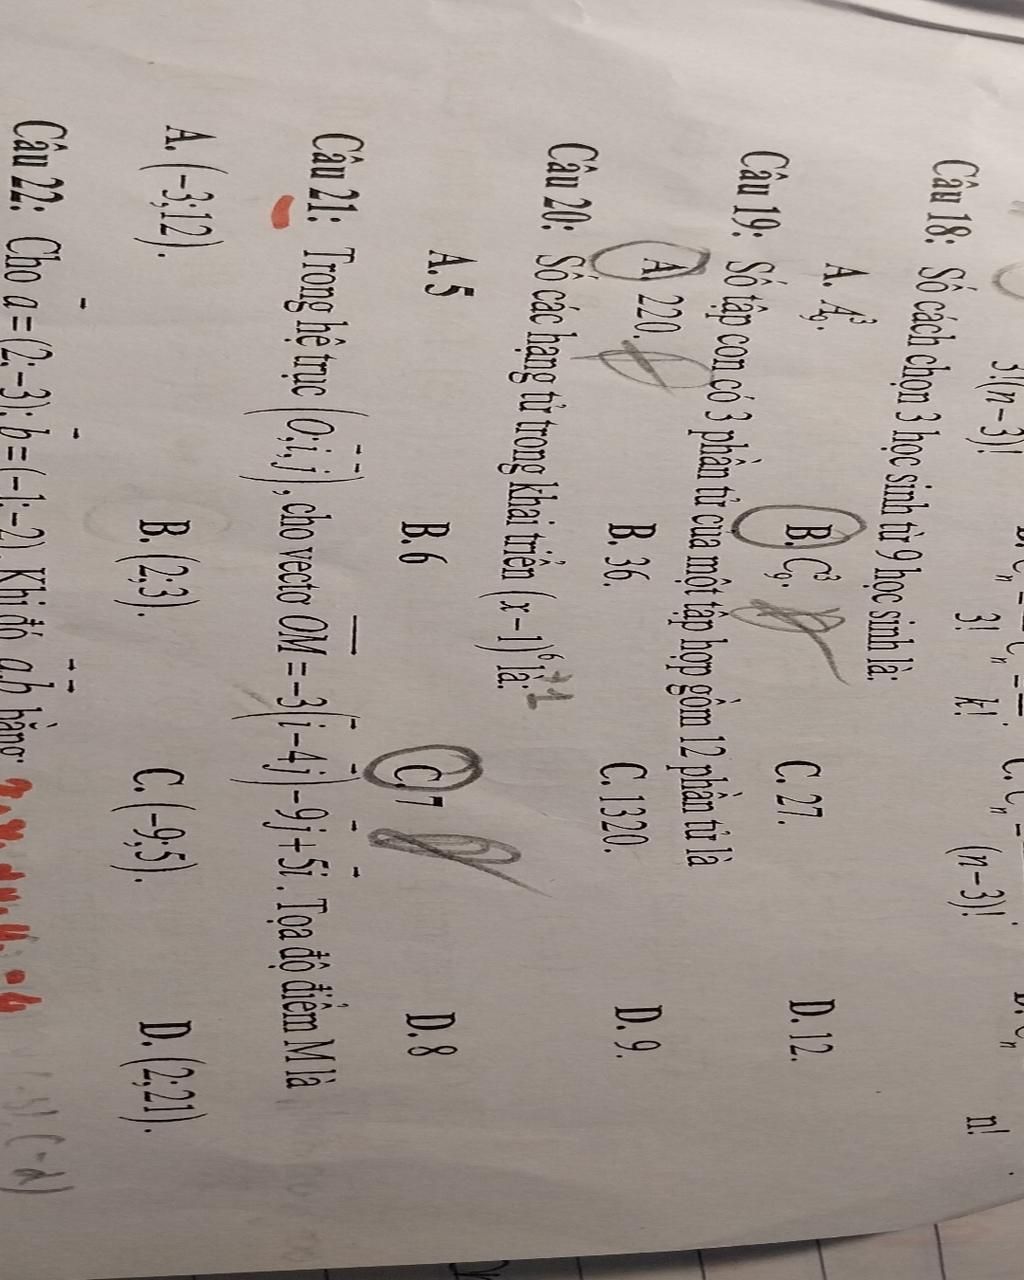 3!(n-3)!
3!
k!
(n-3)!
n!
Câu 18: Số cách chọn 3 học sinh từ 9 học sinh là:
A. A₉³. B. C₉³. C. 27. D. 12.
Câu 19: Số tập con có 3 phần tử của một tập hợp gồm 12 phần tử là
A. 220. B. 36. C. 1320. D. 9.
Câu 20: Số các hạng tử trong khai triển (x-1)⁶ là: +1
A. 5 B. 6 C. 7 D. 8
Câu 21: Trong hệ trục (O;i⃗,j⃗), cho vectơ OM⃗ = -3(i⃗-4j⃗)-9j⃗+5i⃗. Tọa độ điểm M là
A. (-3;12). B. (2;3). C. (-9;5). D. (2;21).
Câu 22: Cho a⃗=(2;-3); b⃗=(-1;-2). Khi đó a⃗.b⃗ bằng: